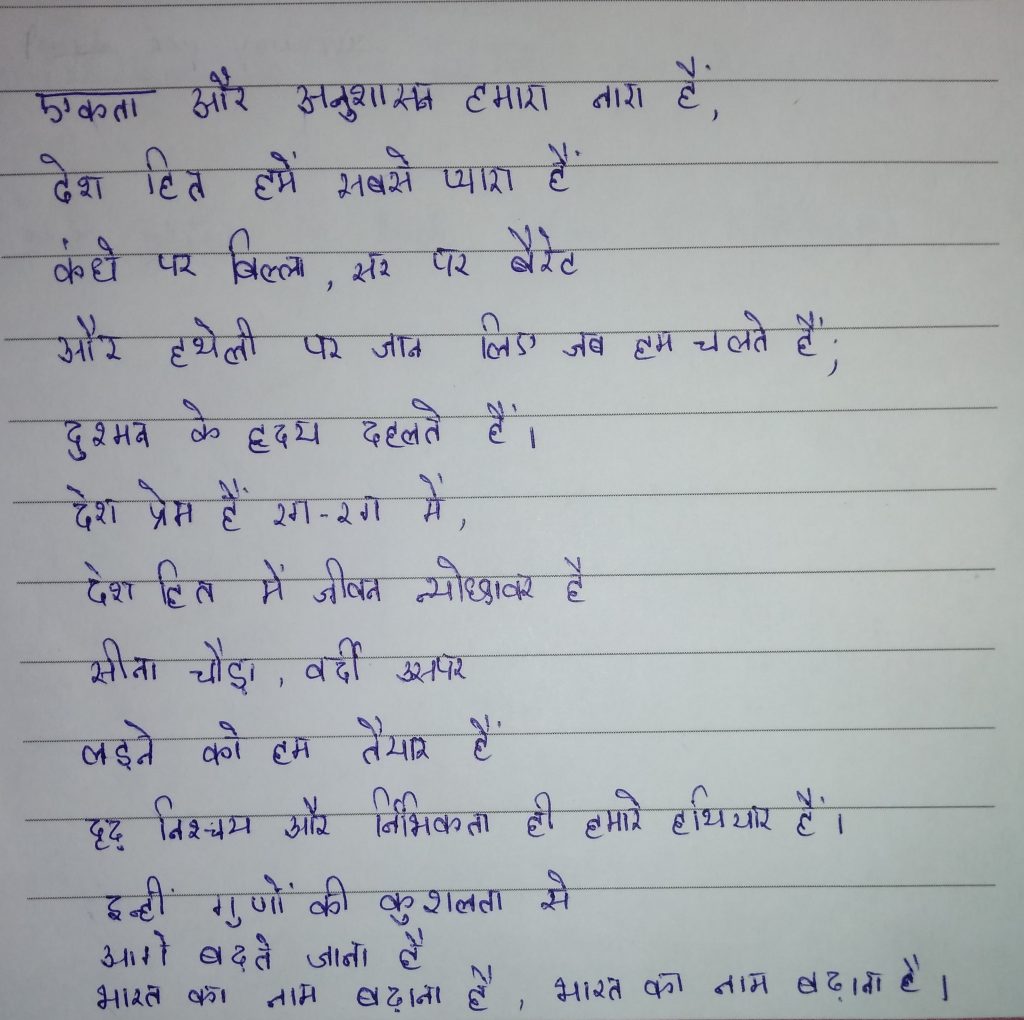 एकता और अनुशासन हमारा नारा हैं,
देश हित हमें सबसे प्यारा हैं
कंधे पर बिल्ला, सर पर बैरेट
और हथेली पर जान लिए जब हम चलते हैं;
दुश्मन के हृदय दहलते हैं।
देश प्रेम हैं रग-रग में,
देश हित में जीवन न्योछावर है
सीना चौड़ा, वर्दी उसपर
लड़ने को हम तैयार हैं
दृढ़ निश्चय और निर्भिकता ही हमारे हथियार हैं।
इन्हीं गुणों की कुशलता से
आगे बढ़ते जाना है
भारत का नाम बढ़ाना है, भारत का नाम बढ़ाना है।